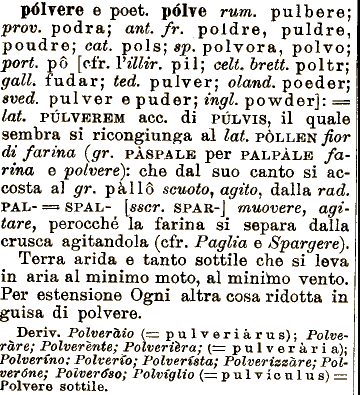 pólvere e poet. pólve rum. pulbere;
prov. podra; ant. fr. poldre, puldre,
poudre; cat. pols; sp. polvora, polvo;
port. pô [cfr. l'illir. pil; celt. brett. poltr;
gall. fudar; ted. pulver; oland. poeder;
sved. pulver e puder; ingl. powder]: =
lat. PÚLVEREM acc. di PÚLVIS, il quale
sembra si ricongiunga al lat. PÒLLEN fior
di farina (gr. PÀSPALE per PALPÀLE fa-
rina e polvere): che dal suo canto si ac-
costa al gr. pàllô scuoto, agito, dalla rad.
PAL- = SPAL- [sscr. SPAR-] muovere, agi-
tare, perocchè la farina si separa dalla
crusca agitandola (cfr. Paglia e Spargere).
Terra arida e tanto sottile che si leva
in aria al minimo moto, al minimo vento.
Per estensione Ogni altra cosa ridotta in
guisa di polvere.
Deriv. Polveràio (= pulveriàrus); Polve-
ràre; Polverènte; Polverièra; (= pulverària);
Polveríno; Polverío; Polverísta; Polverizzàre; Pol-
veróne; Polveróso; Polvíglio (= pulvículus) =
Polvere sottile.